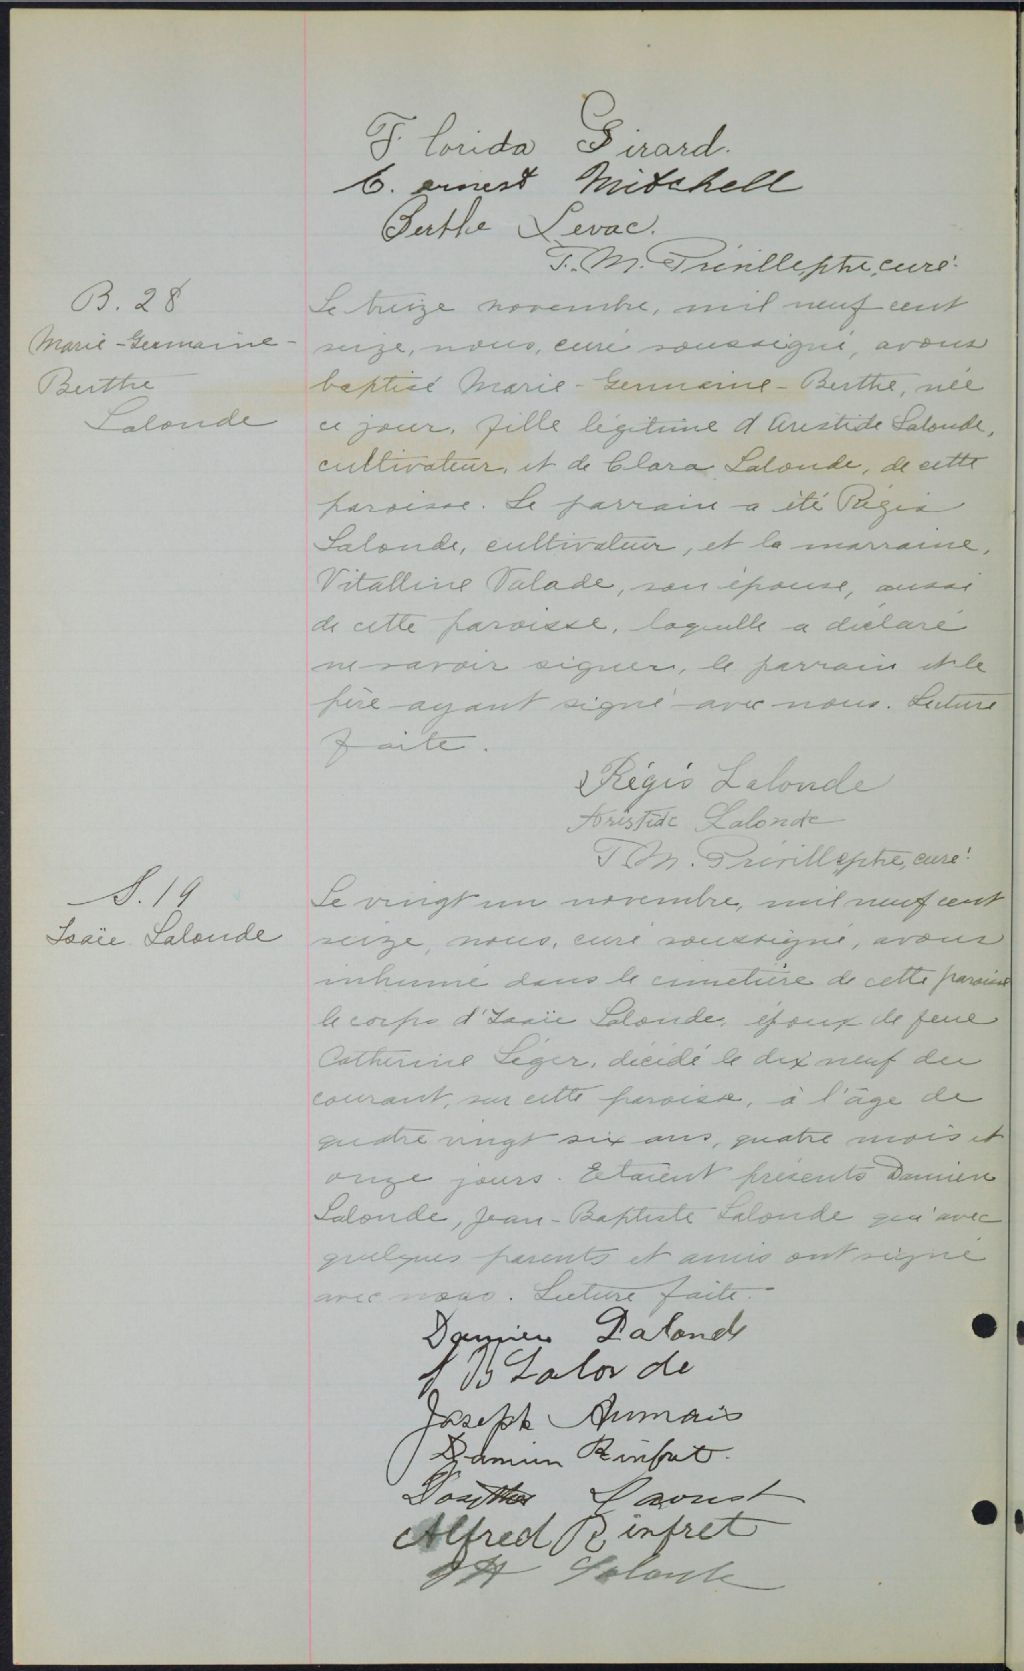 Florida Girard.
C. ernest Mitchell
Berthe Levac.
F. M. Préville, ptre, curé.
B. 28
Marie-Germaine-
Berthe
Lalonde
Le treize novembre, mil neuf cent
seize, nous, curé soussigné, avons
baptisé Marie-Germaine-Berthe, née
ce jour, fille légitime d'Aristide Lalonde,
cultivateur, et de Clara Lalonde, de cette
paroisse. Le parrain a été Régis
Lalonde, cultivateur, et la marraine,
Vitalline Valade, son épouse, aussi
de cette paroisse, laquelle a déclaré
ne savoir signer, le parrain et le
père ayant signé avec nous. Lecture
faite.
Régis Lalonde
Aristide Lalonde
F. M. Préville, ptre, curé.
S. 19
Isaïe Lalonde
Le vingt un novembre, mil neuf cent
seize, nous, curé soussigné, avons
inhumé dans le cimetière de cette paroisse
le corps d'Isaïe Lalonde, époux de feue
Catherine Léger, décédé le dix neuf du
courant, sur cette paroisse, à l'âge de
quatre vingt six ans, quatre mois et
onze jours. Etaient présents Damien
Lalonde, Jean-Baptiste Lalonde qui avec
quelques parents et amis ont signé
avec nous. Lecture faite.
Damien Lalonde
J B Lalonde
Joseph Aumais
Damien Rinfret.
Alfred Rinfret
Lalonde